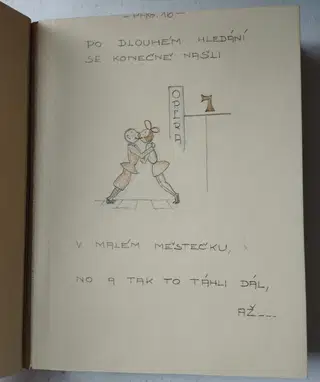 PO DLOUHÉM HLEDÁNÍ
SE KONEČNĚ NAŠLI
V MALÉM MĚSTEČKU,
NO A TAK TO TÁHLI DÁL,
AŽ---